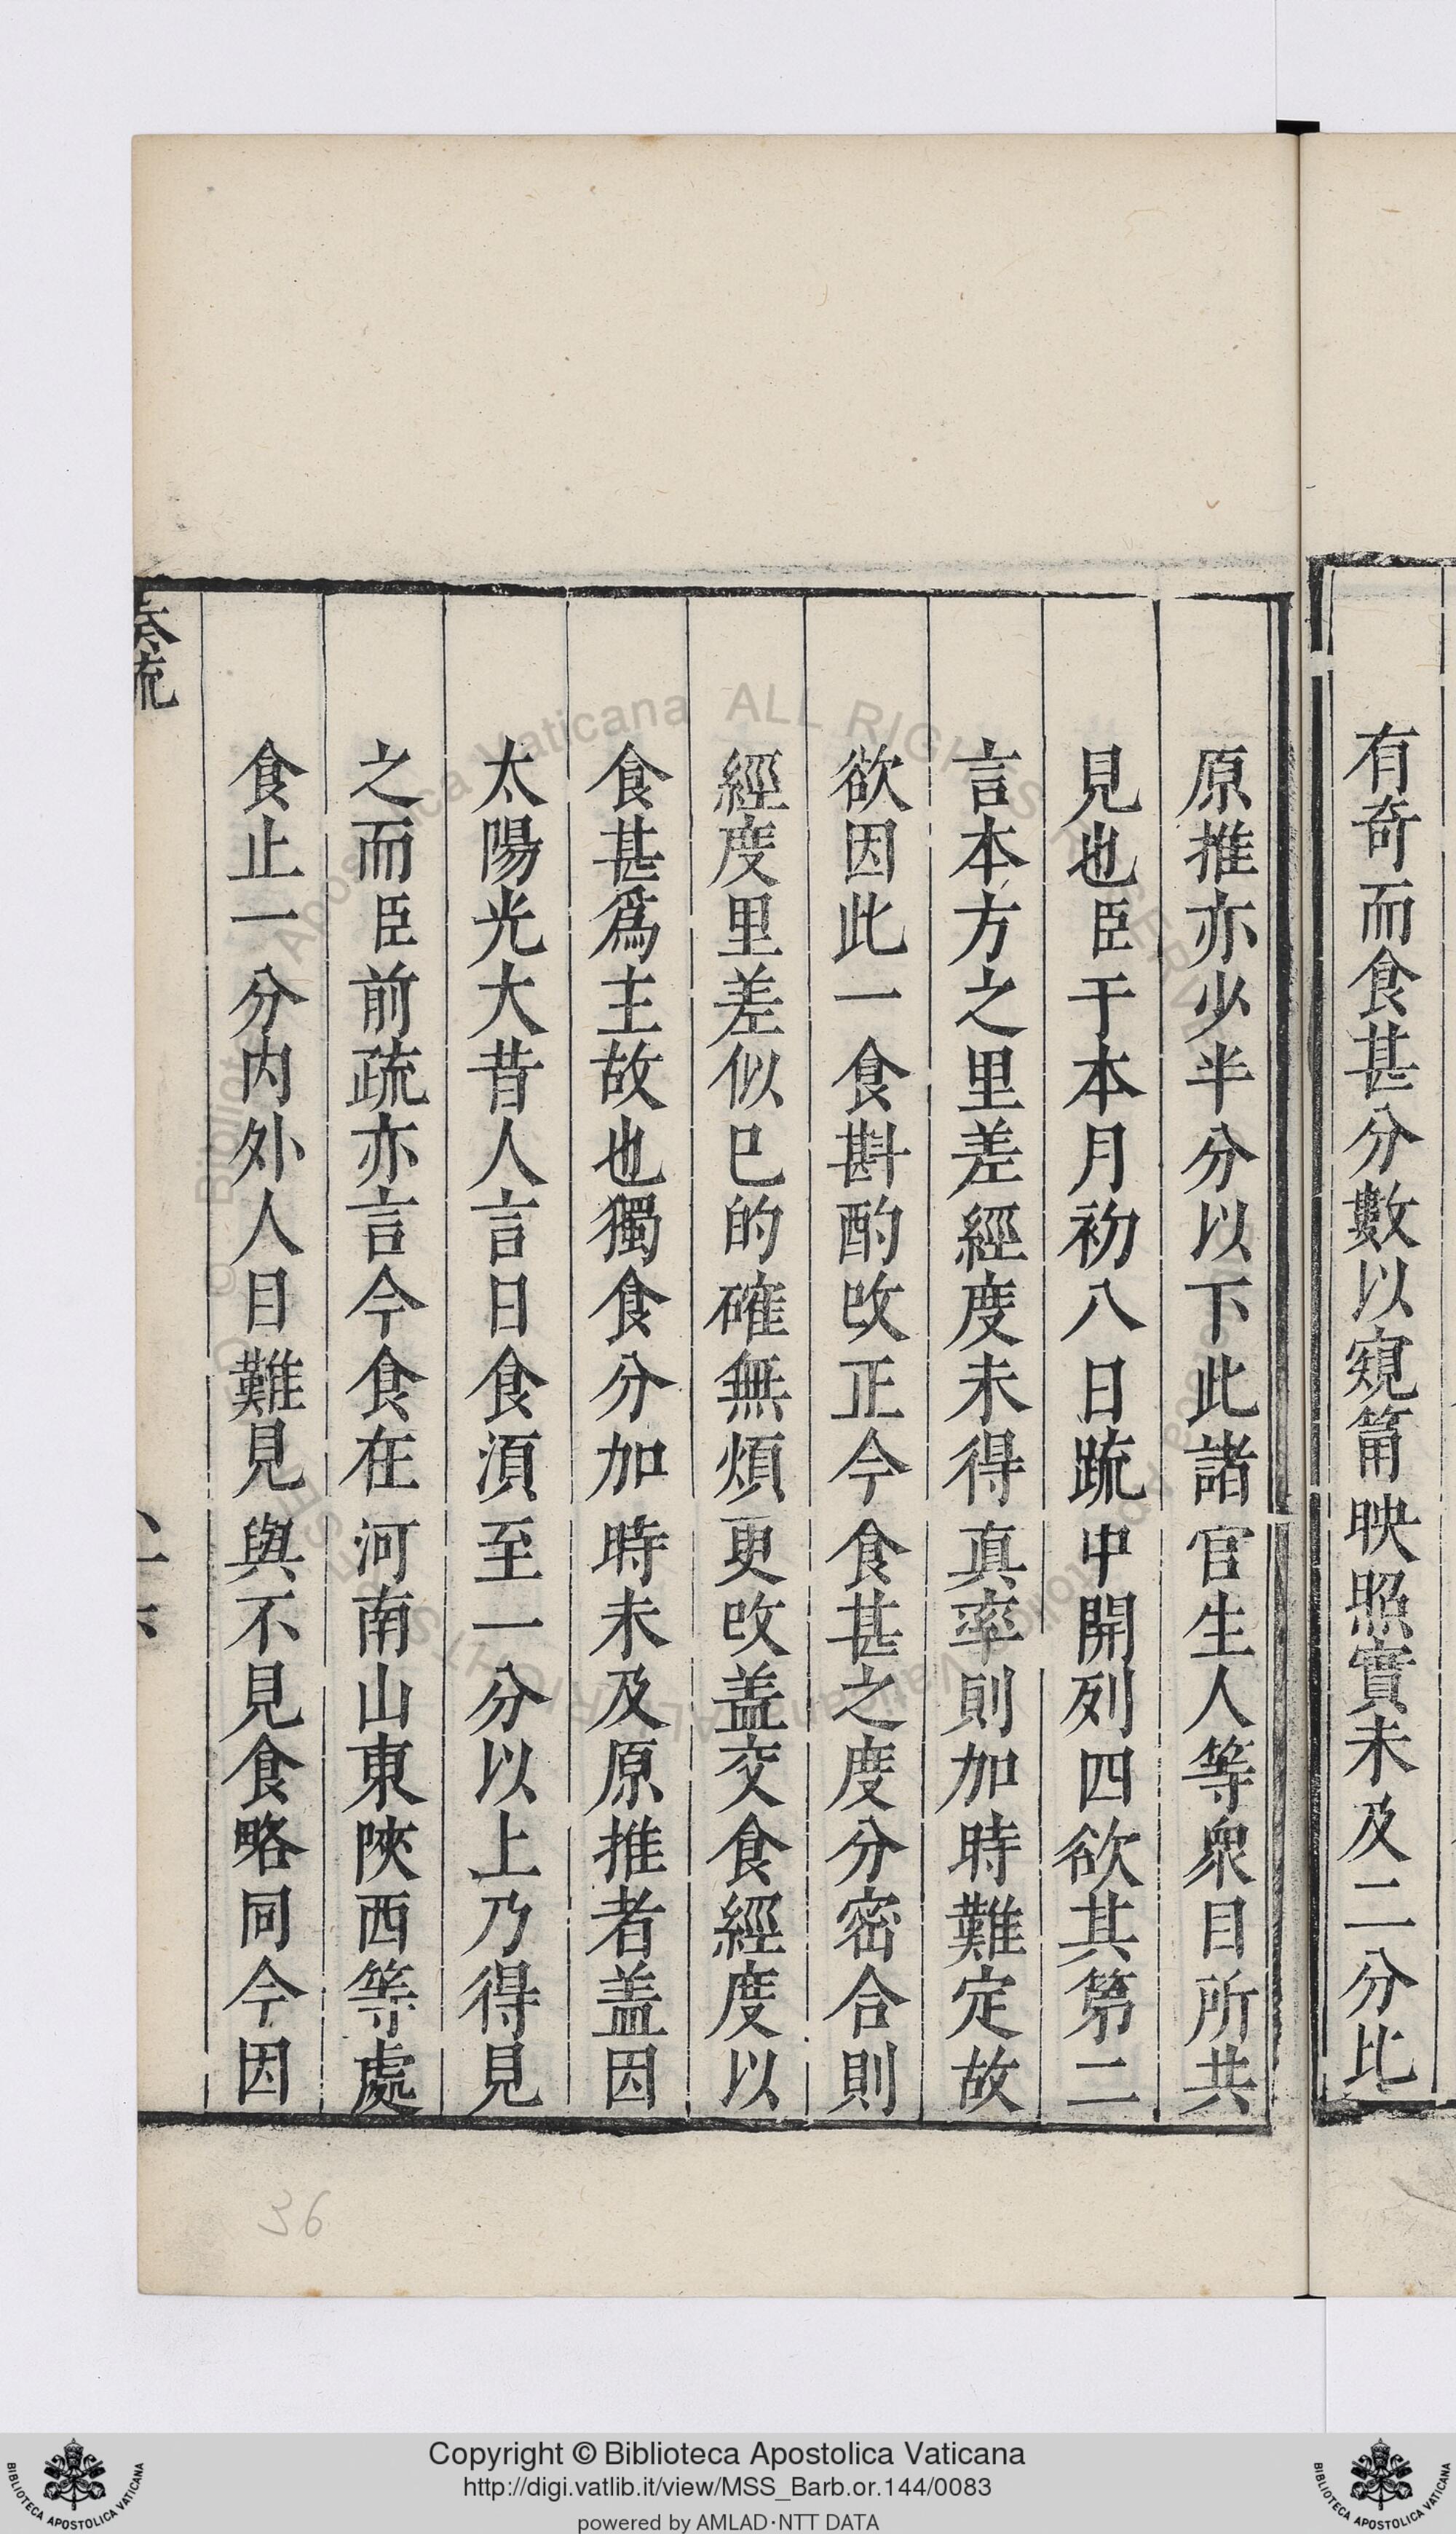 有奇而食甚分數以窺筩映照實未及二分比
原推亦少半分以下此諸官生人等衆目所共
見也臣于本月初八日䟽中開列四欲其第二
言本方之里差經度未得真率則加時難定故
欲因此一食斟酌改正今食甚之度分密合則
經度里差似已的確無煩更改盖交食經度以
食甚爲主故也獨食分加時未及原推者盖因
太陽光大昔人言日食湏至一分以上乃得見
之而臣前疏亦言今食在河南山東陝西等處
食止一分内外人目難見與不見食略同今因
36
Copyright © Biblioteca Apostolica Vaticana
http://digi.vatlib.it/view/MSS_Barb.or.144/0083
powered by AMLAD·NTT DATA